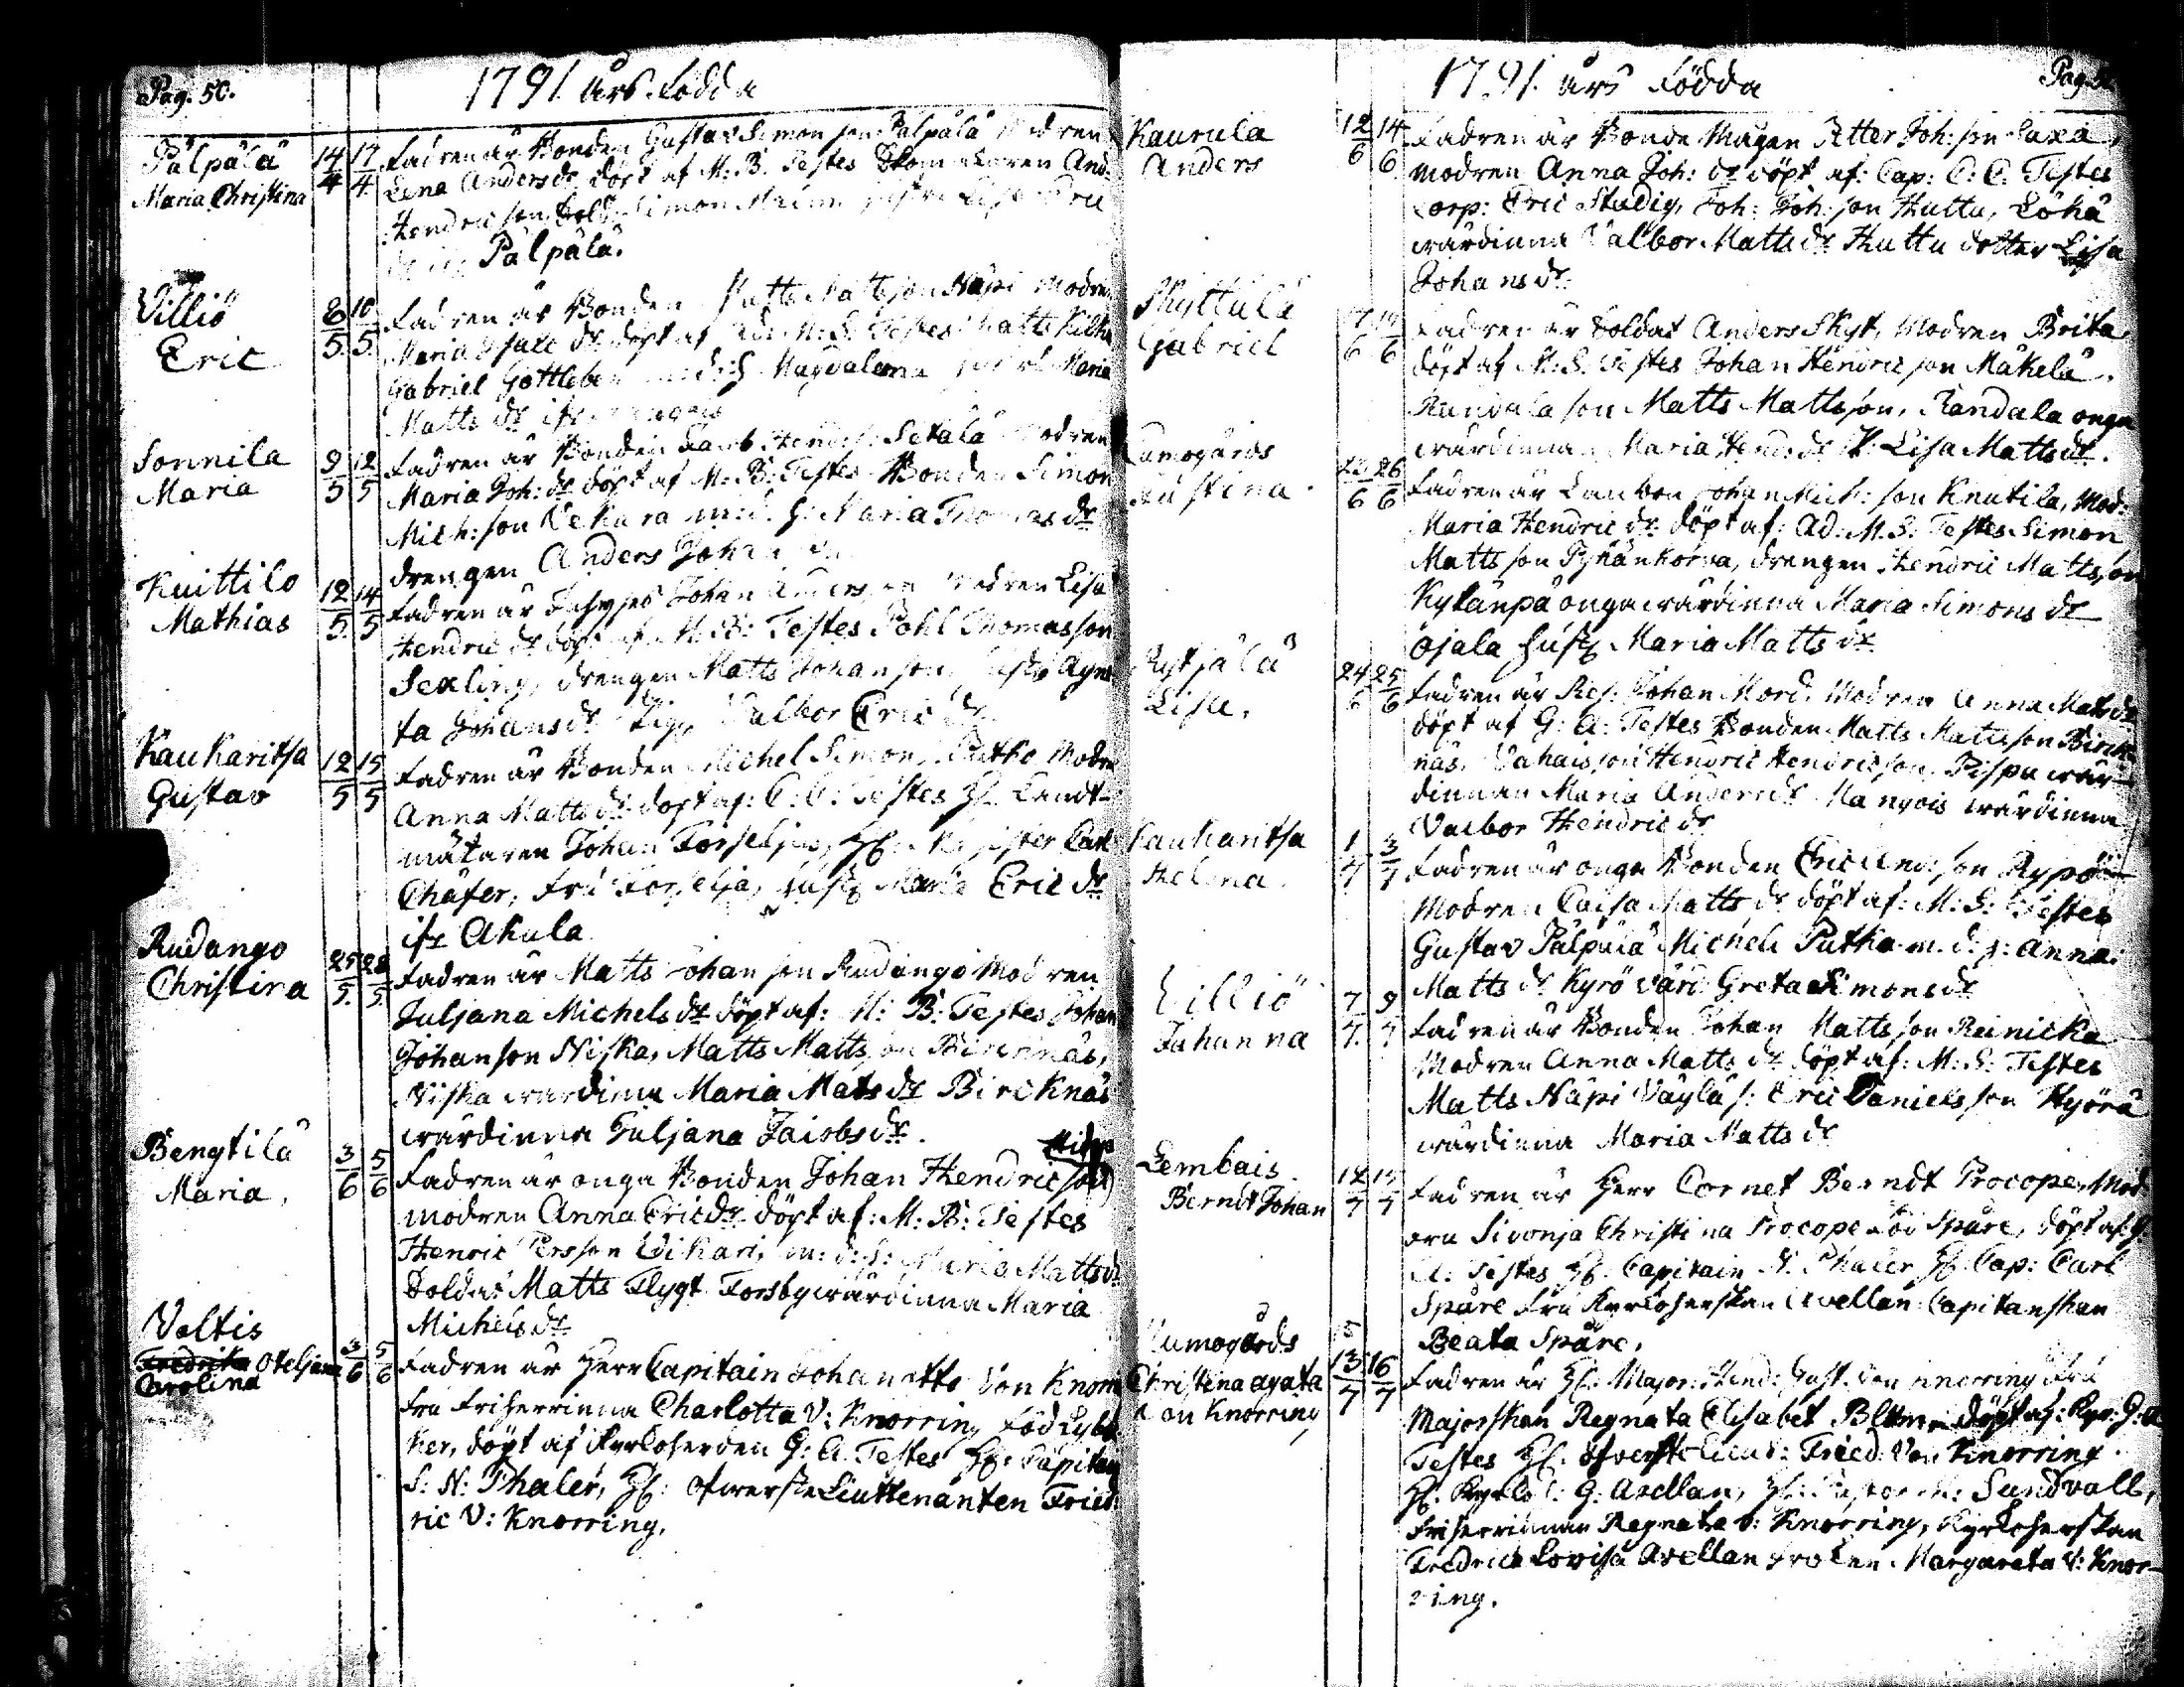 Pag. 50.
1791 års Födda
Pälpälä
Maria Christina
14/4 17/4
Fadren är Bonden Gustav Simonson Pälpälä Modren
Lena Anders dr döpt af M: B. Testes And.
Hendricson, Sold. Simon
Pälpälä.
Villiö
Eric
8/5 10/5
Fadren är Bonden Matts Mattsson Näpi Modren
Maria dr döpt af Ad: M: S. Testes Matts
Gabriel Gottleben m: d: H. Magdalena Maria
Matts dr
Sonnila
Maria
9/5 12/5
Fadren är Bonden Hend: s: Setälä Modren
Maria Joh: dr döpt af M: B: Testes Bonden Simon
Mich: son Vekara m: d: H: Maria Thomas dr
drengen Anders Johan
Kuittilo
Mathias
12/5 14/5
Fadren är Johan Modren Lisa
Hendric dr döpt af M: B: Testes Pohl Thomasson
Sexling, drengen Matts Johanson, Agne
ta Johans dr Pig. Valbor Eric dr
Kaukaritsa
Gustav
12/5 15/5
Fadren är Bonden Michel Simon. Putko Modren
Anna Matts dr döpt af: C: C: Testes H: Landt-
mätaren Johan Forseljus, H: Carl
Chäfer, Fru Forselja, Hust: Maria Eric dr
ifr Akula
Rudango
Christina
25/5 28/5
Fadren är Matts Johanson Rudango Modren
Juljana Michels dr döpt af: M: B: Testes Johan
Johanson Niska, Matts Mattsson Bircknäs,
Niska wärdinna Maria Mats dr Bircknäs
wärdinna Juljana Jacobs dr.
Bengtilä
Maria,
3/6 5/6
Fadren är onga Bonden Johan Hendricson
modren Anna Erics dr döpt af: M: B: Testes
Henric Persson Vikari, m: d: H: Maria Matts dr
Soldat Matts Flygt Forsby wärdinna Maria
Michels dr
Voltis
Fredrika Oteljana
Carolina
3/6 5/6
Fadren är Herr Capitain Johan Otto Von Knorr
Fru Friherrinna Charlotta V: Knorring Född Lybe
ker, döpt af Kyrkoherden G: A. Testes H: Capitain
S: N: Thaler, H: Ofwerste Lieuttenanten Fried:
ric V: Knorring.
1791. års Födda
Pag.
Kaurula
Anders
12/6 14/6
Fadren är Bonde Mågen Petter Joh: son Laxa
modren Anna Joh: dr döpt af: Cap: C: C. Testes
Corp: Eric Studig, Joh: Joh: son Huttu, Löhä
wärdinna Valbor Matts dr Huttu dotter Lisa
Johans dr
Skyttälä
Gabriel
17/6 19/6
Fadren är Soldat Anders Skyt, Modren Brita
döpt af M: S. Testes Johan Hendricson Mäkelä.
Randala son Matts Mattsson, Randala onga
wärdinna Maria Hend: dr P. Lisa Matts dr.
Lumogårds
Justina
23/6 26/6
Fadren är Johan Mich: son Knutila, Mod:
Maria Hendric dr döpt af: Ad: M. S: Testes Simon
Mattsson Pyhänkorva, drengen Hendric Mattsson
Kylänpä onga wärdinna Maria Simons dr
Ojala Hust: Maria Matts dr
Lisa,
24/6 25/6
Fadren är Res: Johan Mord, Modren Anna Mats dr
döpt af G: A: Testes Bonden Matts Mattsson Birck
näs, Vahais son Hendric Hendricson, Pispa wär-
dinnan Maria Anders dr Mangois wärdinna
Valbor Hendric dr
Kaukaritsa
Helena.
1/7 3/7
Fadren är onga Bonden Eric And: son Rypö
Modren Caisa Matts dr döpt af: M: S: Testes
Gustav Pälpälä Michel Putko m: d: H: Anna
Matts dr Kyrö värd: Greta Simons dr
Villiö
Johanna
7/7 9/7
Fadren är Bonden Johan Mattsson Reinicka
Modren Anna Matts dr döpt af: M: S: Testes
Matts Näpi Väylä s: Eric Danielsson Hyörä
wärdinna Maria Matts dr
Lembais.
Berndt Johan
Fadren är Herr Cornet Berndt Procope, Mod
Christina Procope föd Spåre, döpt af: G:
A: Testes H: Capitain N: Thaler H: Cap: Carl
Spåre Fru Kyrkoherskan Avellan Capitanskan
Beata Spåre.
Lumogårds
Christina agata
Von Knorring
13/7 16/7
Fadren är H: Major: Hend: Gust. von Knorring Fru
Majorskan Regnata Elisabet döpt af: Kyr: G: A
Testes H: Öfverste Lieut: Fried. Von Knorring.
H: Kyrko: G: Avellan, H: Pastor Sundvall,
Friherrinnan Regnata v: Knorring, Kyrkoherskan
Fredrica Lovisa Avellan Fröken Margareta V: Knor-
ring.